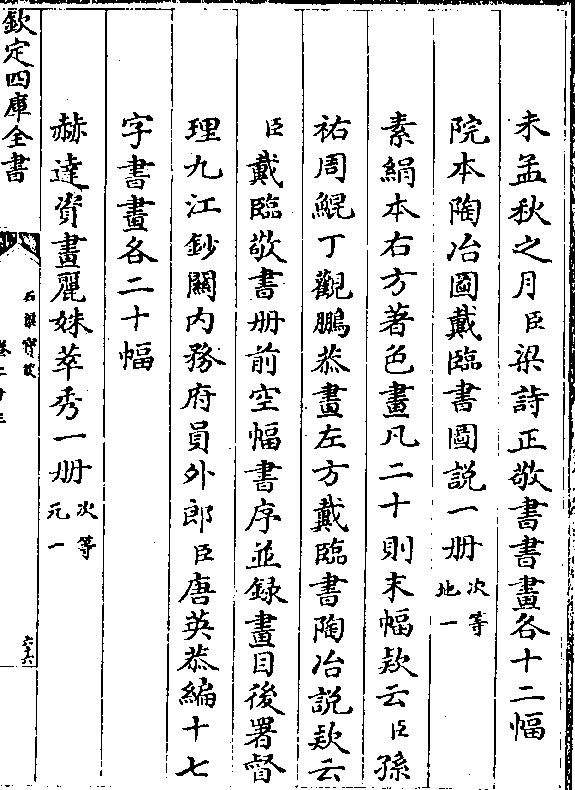 未孟秋之月臣梁詩正敬書書畫各十二幅
院本陶冶圖戴臨書圖説一册次等地一
素絹本右方著色畫凡二十則末幅欵云臣孫
祜周鯤丁觀鵬恭畫左方戴臨書陶冶説欵云
臣戴臨敬書册前空幅書序並録畫目後署督
理九江鈔關内務府員外郎臣唐英恭編十七
字書畫各二十幅
赫達資畫麗姝萃秀一册次等元一
欽定四庫全書
石渠寶笈
卷二十三